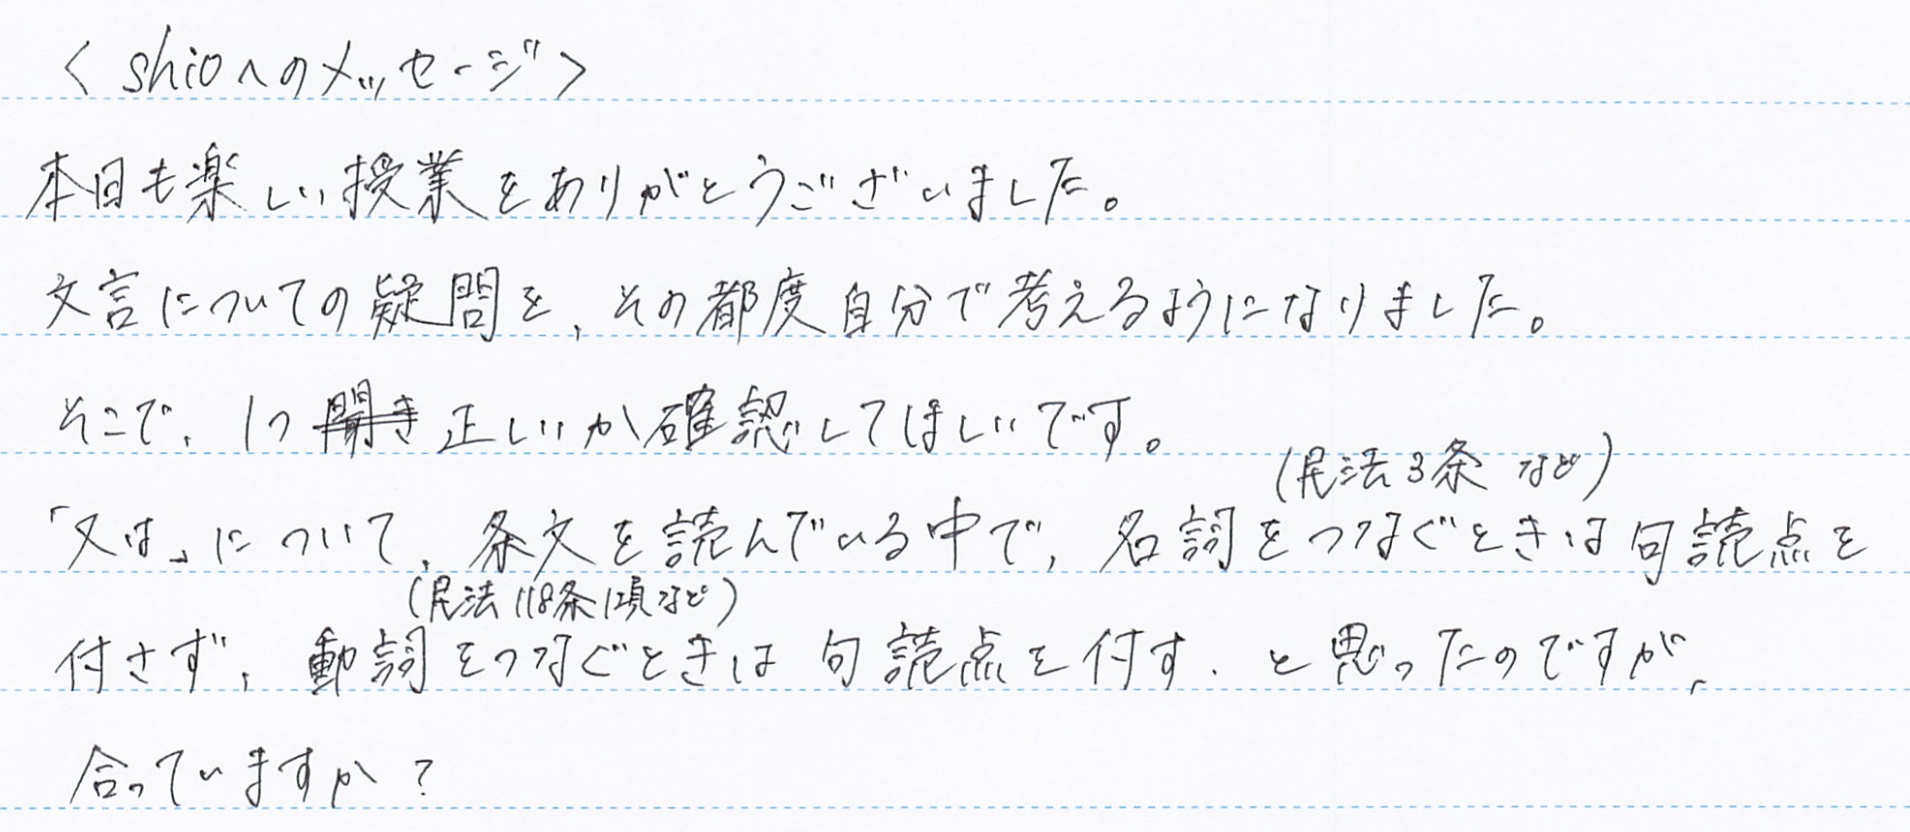 < shioへのメッセージ >
本日も楽しい授業をありがとうございました。
文言についての疑問を、その都度自分で考えるようになりました。
そこで、1つ 正しいか確認してほしいです。
(民法3条 など)
「又は」について、条文を読んでいる中で、名詞をつなぐときは句読点を
(民法118条1項など)
付さず、動詞をつなぐときは 句読点を付す、と思ったのですが、
合っていますか?